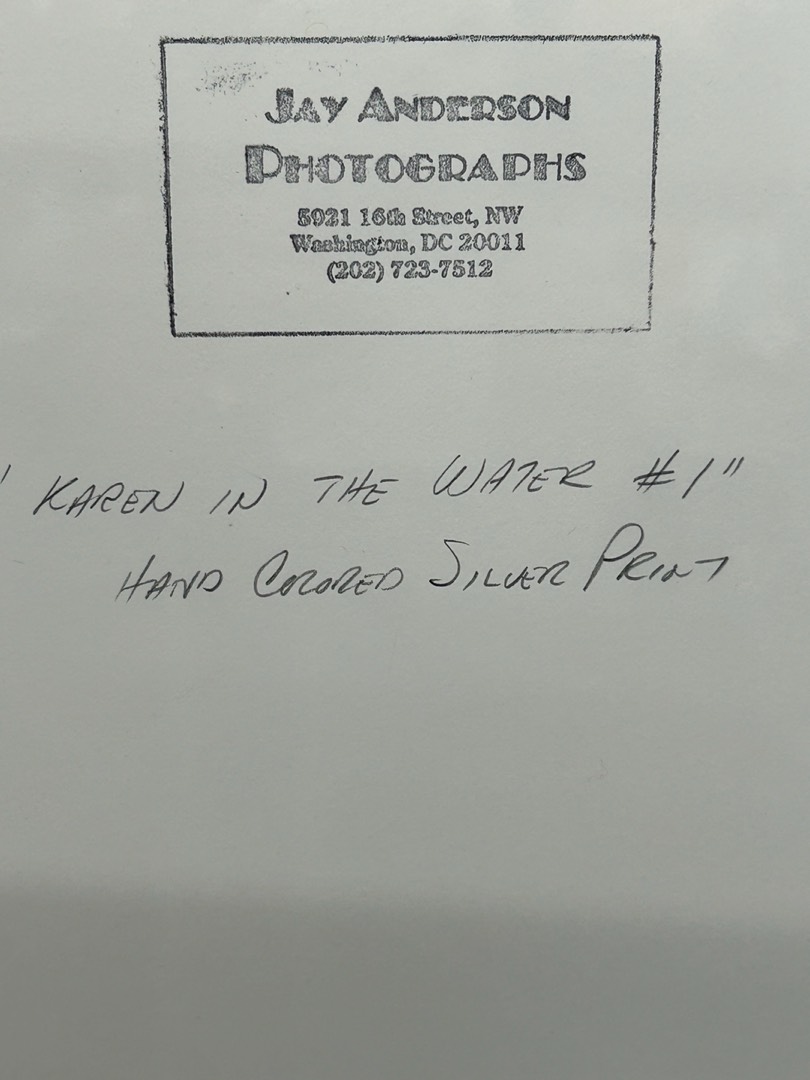 JAY ANDERSON
PHOTOGRAPHS
5921 16th Street, NW
Washington, DC 20011
(202) 723-7512
" KAREN IN THE WATER #1"
HAND COLORED SILVER PRINT